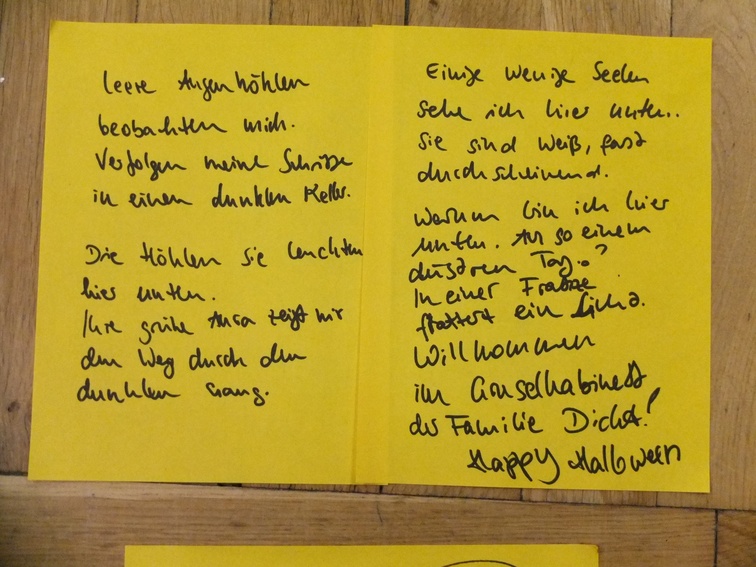 leere Augenhöhlen
beobachten mich.
Verfolgen meine Schritte
in einen dunklen Keller.
Die Höhlen sie leuchten
hier unten.
Ihre grüne Aura zeigt mir
den Weg durch den
dunklen Gang.
Einige wenige Seelen
sehe ich hier unten..
sie sind weiß, fast
durchscheinend.
Warum bin ich hier
unten. An so einem
düstren Tag.?
In einer Fratze
flattert ein Licht.
Willkommen
im Gruselkabinett
der Familie Dicht!
Happy Halloween